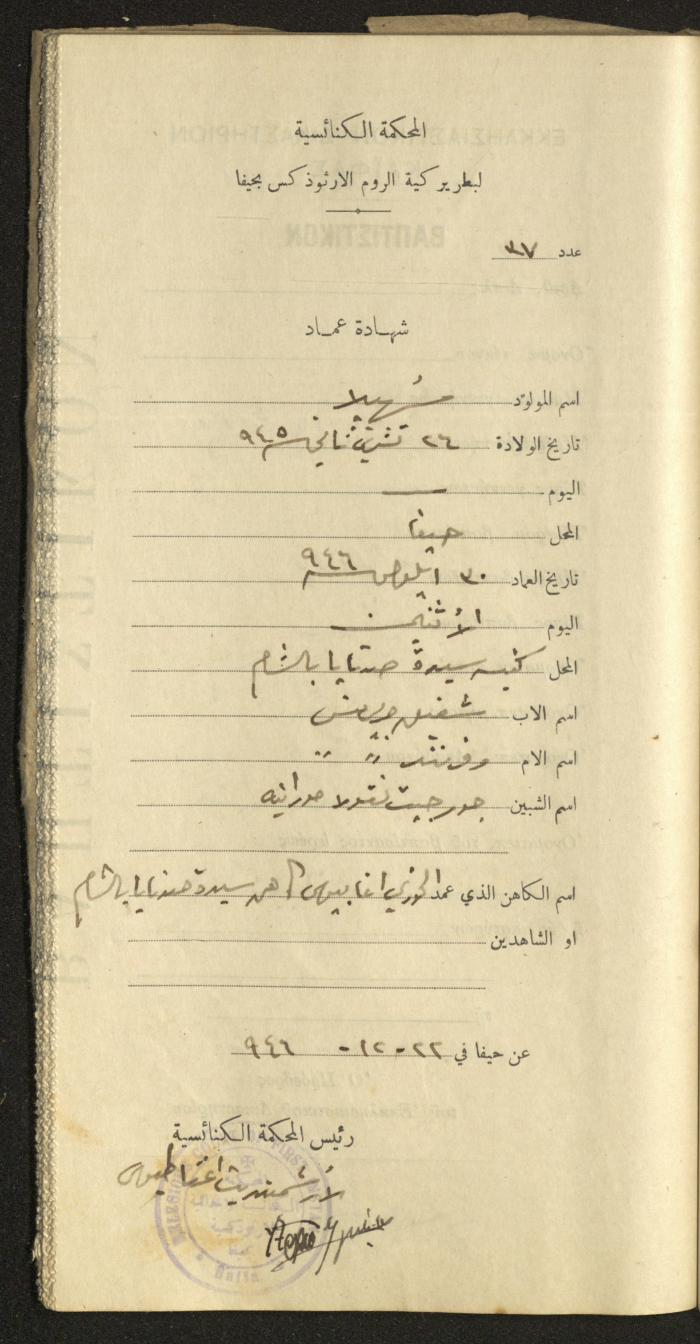 المحكمة الكنائسية
لبطريركية الروم الارثوذكس بحيفا
عدد ٣٧
شهادة عماد
اسم المولود سُهيلا
تاريخ الولادة ٢٦ تشرين ثاني سنة ٩٤٥
اليوم —
المحل حيفا
تاريخ العماد ٣٠ ايلول سنة ٩٤٦
اليوم الأثنين
المحل كنيسة سيدة صيدنايا بالشام
اسم الاب شفيق
اسم الام " "
اسم الشبين جورجيت نقولا حورانيه
اسم الكاهن الذي عمد الخوري اغابيوس كاهن سيدة صيدنايا بالشام
او الشاهدين
عن حيفا في ٢٢-١٢- ٩٤٦
رئيس المحكمة الكنائسية
الأرشمندريت اغناطيوس
Haifa